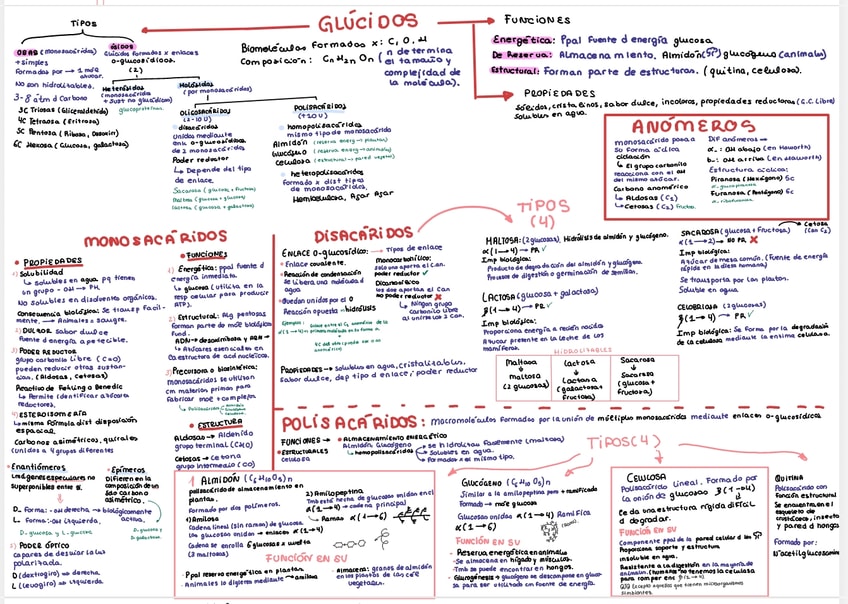 GLÚCIDOS
TIPOS
OSAS (monosacáridos)
+simples
Formadas por → 1 molec azucar.
No son hidrolizables.
3-8 átm d Carbono
3C Triosas (Gliceraldehido)
4C Tetrosas (Eritrosa)
5C Pentosa (Ribosa, Desoxirr)
6C Hexosa (Glucosa, galactosa)
ÓSIDOS
Glúcidos formados x enlaces
o-glucosídicos.
(2)
Heterósidos
(monosacárida
+ sust no glucídica)
glucoproteínas.
Holósidos
(por monosacáridos)
OLIGOSACÁRIDOS
(2-10 U)
disacáridos
Unidos mediante
enl o-glucosídicos
de 2 monosacáridos
Poder reductor
↳ Depende del tipo
de enlace
Sacarosa (glucosa + fructosa)
Maltosa (glucosa + glucosa)
lactosa (glucosa + galactosa)
POLISACÁRIDOS
(+20 U)
homopolisacáridos
mismo tipo de monosacárido
Almidón (reserva energ → plantas)
Glucógeno (reserva energ → animales)
Celulosa (estructural → pared vegetal)
heteropolisacáridos
Formado x dist tipos
de monosacáridos.
Hemicelulosa, Agar Agar
Biomoléculas Formadas x: C, O, H
Composición: CnH2nOn
(n determina
el tamaño y
complejidad de
la molécula).
FUNCIONES
Energética: Ppal Fuente d energía glucosa
De Reserva: Almacenamiento. Almidón glucógeno (animales)
Estructural: Forman parte de estructuras. (quitina, celulosa).
PROPIEDADES
Sólidos, cristalinos, sabor dulce, incoloros, propiedades reductoras (G.C. Libre)
Solubles en agua.
ANÓMEROS
monosacárido pasa a
su forma cíclica
ciclación
↳ El grupo carbonilo
reacciona con el OH
del mismo azúcar.
Carbono anomérico
↳ Aldosas (C1)
↳ Cetosas (C2)
DIF anómeros →
α: OH abajo (en Haworth)
b: OH arriba (en Haworth)
Estructura cíclica:
Piranosa (Hexágono) 5C
Furanosa (Pentágono) 5C
MONOSACÁRIDOS
PROPIEDADES
1) Solubilidad
↳ solubles en agua pq tienen
un grupo -OH → PH
No solubles en disolventes orgánicos.
Consecuencia biológica: Se transp Facil-
mente. → Animales = sangre.
2) DULZOR sabor dulce
fuente d energía apetecible.
3) PODER REDUCTOR
grupo carbonilo libre (C=O)
pueden reducir otras sustan-
cias. (Aldosas, Cetosas)
Reactivo de Fehling o Benedic
↳ Permite identificar azúcares
reductores.
4) ESTEREOISOMERÍA
↳ misma Fórmula dist disposición
espacial.
Carbonos asimétricos, quirales
(unidos a 4 grupos diferentes
Enantiómeros
Imágenes especulares no
superponibles entre sí.
Epímeros
Difieren en la
composición de un
sólo carbono
asimétrico.
D. Forma: -OH derecha → biológicamente
activa.
L. Forma: -OH izquierda.
D-glucosa y L-glucosa
D-glucosa y
D-galactosa
5) PODER ÓPTICO
capaces de desviar la luz
polarizada.
D (dextrógiro) → derecha
L (levógiro) → izquierda
FUNCIONES
1) Energética: ppal fuente d
energía inmediata
↳ glucosa (utiliza en la
resp celular para producir
ATP).
2) Estructural: Alg pentosas
forman parte de molc biológicas
Fund.
ADN → desoxirribosa y ARN →
↳ Azúcares esenciales en
la estructura de acid nucleicos.
3) Precursora o biosintética:
monosacáridos se utilizan
cm materias primas para
Fabricar molc + complejas
ESTRUCTURA
Aldosas → Aldehido
grupo terminal (CHO)
Cetosas → Cetona
grupo intermedio (CO)
DISACÁRIDOS
ENLACE O-glucosídico:
Enlace covalente.
Reacción de condensación
Se libera una molécula d
agua
Quedan unidos por el O
Reacción opuesta → hidrólisis
→ Tipos de enlace
Monocarbonílico:
Solo uno aporta el Can.
poder reductor ✓
Dicarbonílico
los dos aportan el Can
no poder reductor ✗
↳ Ningún grupo
carbonilo libre
al unirse x 2 Can.
Propiedades → Solubles en agua, cristalizables,
Sabor dulce, dep tipo d enlace; poder reductor
TIPOS
(4)
MALTOSA: (2 glucosas) Hidrólisis de almidón y glucógeno.
α(1→4) → PR ✓
Imp biológica:
Producto de degradación del almidón y glucógeno
Procesos de digestión o germinación de semillas.
LACTOSA (glucosa + galactosa)
β(1→4) → PR ✓
Imp biológica:
Proporciona energía a recién nacido
Azúcar presente en la leche de los
mamíferos
SACAROSA (glucosa + Fructosa)
Cetosa
(Can C2)
α(1→2) → NO PR ✗
Imp biológica:
Azúcar de mesa común. (Fuente de energía
rápida en la dieta humana)
Se transporta por las plantas.
Soluble en agua
CELOBIOSA (2 glucosas)
β(1→4) → PR ✓
Imp biológica: Se Forma por la degradación
de la celulosa mediante la enzima celulasa.
HIDROLIZABLES
Maltasa
↓
Maltosa
(2 glucosas)
lactasa
↓
Lactosa
(galactosa +
fructosa)
Sacarasa
↓
Sacarosa
(glucosa +
fructosa)
POLISACÁRIDOS: macromoléculas formados por la unión de múltiples monosacáridos mediante enlaces o-glucosídicos
FUNCIONES → ALMACENAMIENTO ENERGÉTICO
Almidón, Glucógeno
ESTRUCTURALES
celulosa
homopolisacáridos
Se hidrolizan fácilmente (maltosa)
Solubles en agua.
Formados x el mismo tipo.
TIPOS (4)
1 ALMIDÓN (C6H10O5)n
polisacárido de almacenamiento en
plantas.
Formado por dos polímeros.
1) Amilosa
Cadena lineal (sin ramas) de glucosas.
Las glucosas unidas → enlaces α(1→4)
Cadena se enrolla 6 glucosas x vuelta
(3 maltosas)
2) Amilopectina
Tmb está hecha de glucosas unidas en el
α(1→4) → cadena principal
↳ Ramas α(1→6)
FUNCIÓN EN SV
Ppal reserva energética en plantas
Animales lo digieren mediante → amilasa
Almacena: granos de almidón
en los plastos de las cels
vegetales.
GLUCÓGENO (C6H10O5)n
Similar a la amilopectina pero + ramificado
Formado → mole glucosa
Glucosas unidas α(1→4) Ramifica
α(1→6)
FUNCIÓN EN SV
Reserva energética en animales
Se almacena en hígado y músculos.
Tmb se puede encontrar en hongos.
Glucogénesis → glucógeno se descompone en gluco-
sa para ser utilizado cm fuente de energía.
CELULOSA
Polisacárido Lineal. Formado por
la unión de glucosas β(1→4)
Le da una estructura rígida difícil
d degradar.
FUNCIÓN EN SV
Componente ppal de la pared celular d las
Proporciona soporte y estructura
insoluble en agua.
Resistente a la digestión en la mayoría de
animales. (humanos no tenemos la celulasa
para romper enl β(1→4)
simbiontes.
QUITINA
Polisacárido con
Función estructural
Se encuentra en el
esqueleto de
crustáceos, insectos
y pared d hongos
Formado por:
N-acetilglucosamina